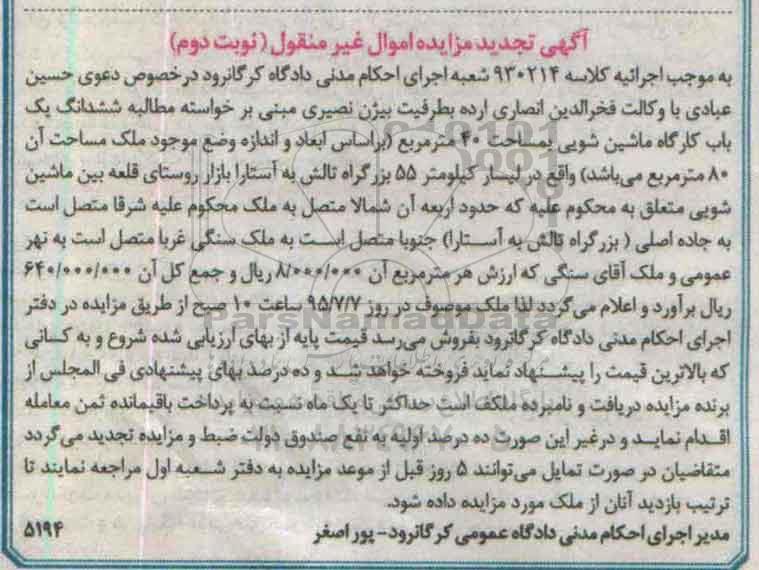 آگهی تجدید مزایده اموال غیر منقول (نوبت دوم)
به موجب اجرائیه کلاسه ۹۳۰۲۱۴ شعبه اجرای احکام مدنی دادگاه کرگانرود درخصوص دعوی حسین
عبادی با وکالت فخرالدین انصاری ارده بطرفیت بیژن نصیری مبنی بر خواسته مطالبه ششدانگ یک
باب کارگاه ماشین شویی بمساحت ۴۰ مترمربع (براساس ابعاد و اندازه وضع موجود ملک مساحت آن
۸۰ مترمربع می‌باشد) واقع در لیسار کیلومتر ۵۵ بزرگراه تالش به آستارا بازار روستای قلعه بین ماشین
شویی متعلق به محکوم علیه که حدود اربعه آن شمالا متصل به ملک محکوم علیه شرقا متصل است
به جاده اصلی ( بزرگراه تالش به آستارا) جنوبا متصل است به ملک سنگی غربا متصل است به نهر
عمومی و ملک آقای سنگی که ارزش هر مترمربع آن ۸/۰۰۰/۰۰۰ ریال و جمع کل آن ۶۴۰/۰۰۰/۰۰۰
ریال برآورد و اعلام می‌گردد لذا ملک موصوف در روز ۹۵/۷/۷ ساعت ۱۰ صبح از طریق مزایده در دفتر
اجرای احکام مدنی دادگاه کرگانرود بفروش می‌رسد قیمت پایه از بهای ارزیابی شده شروع و به کسانی
که بالاترین قیمت را پیشنهاد نماید فروخته خواهد شد و ده درصد بهای پیشنهادی فی المجلس از
برنده مزایده دریافت و نامبرده ملکف است حداکثر تا یک ماه نسبت به پرداخت باقیمانده ثمن معامله
اقدام نماید و درغیر این صورت ده درصد اولیه به نفع صندوق دولت ضبط و مزایده تجدید می‌گردد
متقاضیان در صورت تمایل می‌توانند ۵ روز قبل از موعد مزایده به دفتر شعبه اول مراجعه نمایند تا
ترتیب بازدید آنان از ملک مورد مزایده داده شود.
مدیر اجرای احکام مدنی دادگاه عمومی کرگانرود - پور اصغر
۵۱۹۴
ParsNamadData